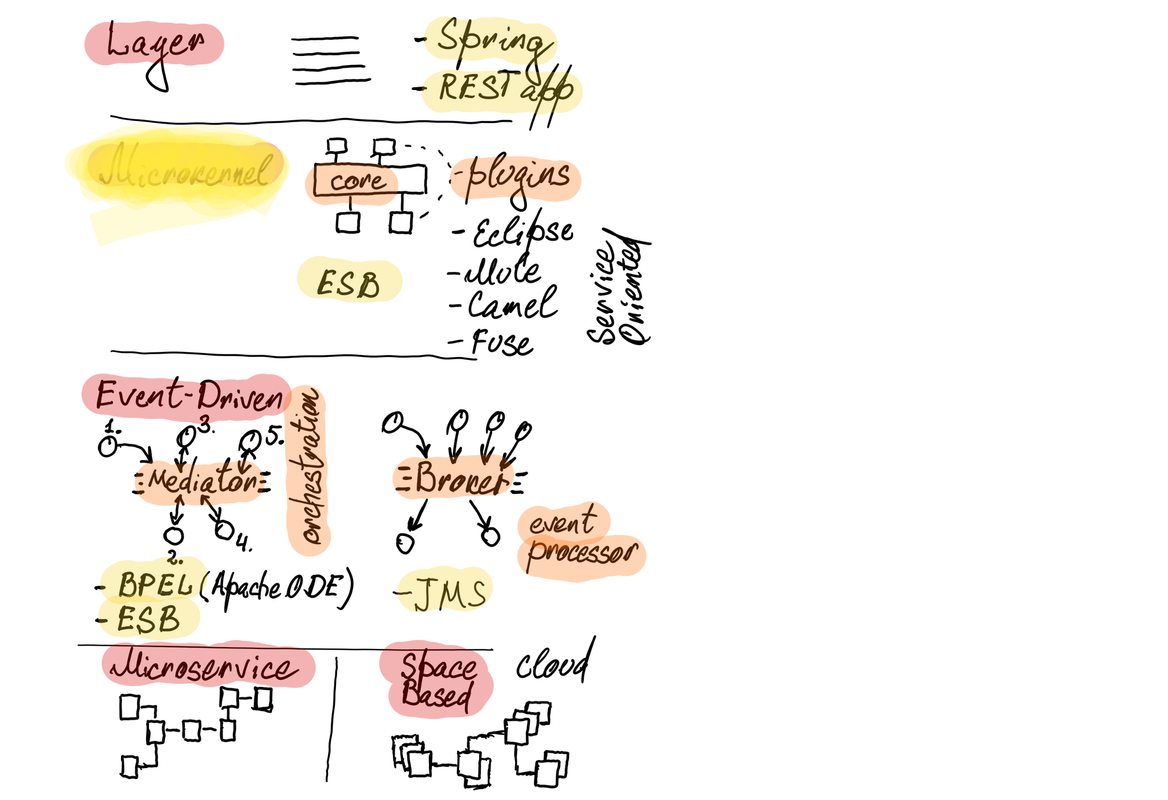 Layer
- Spring
- REST app
Microkernel
core
- plugins
- Eclipse
- Mule
- Camel
- Fuse
ESB
Service
Oriented
Event-Driven
orchestration
1.
3.
5.
Mediator
2.
4.
- BPEL (Apache ODE)
- ESB
Broker
event
processor
- JMS
Microservice
Space
Based
cloud